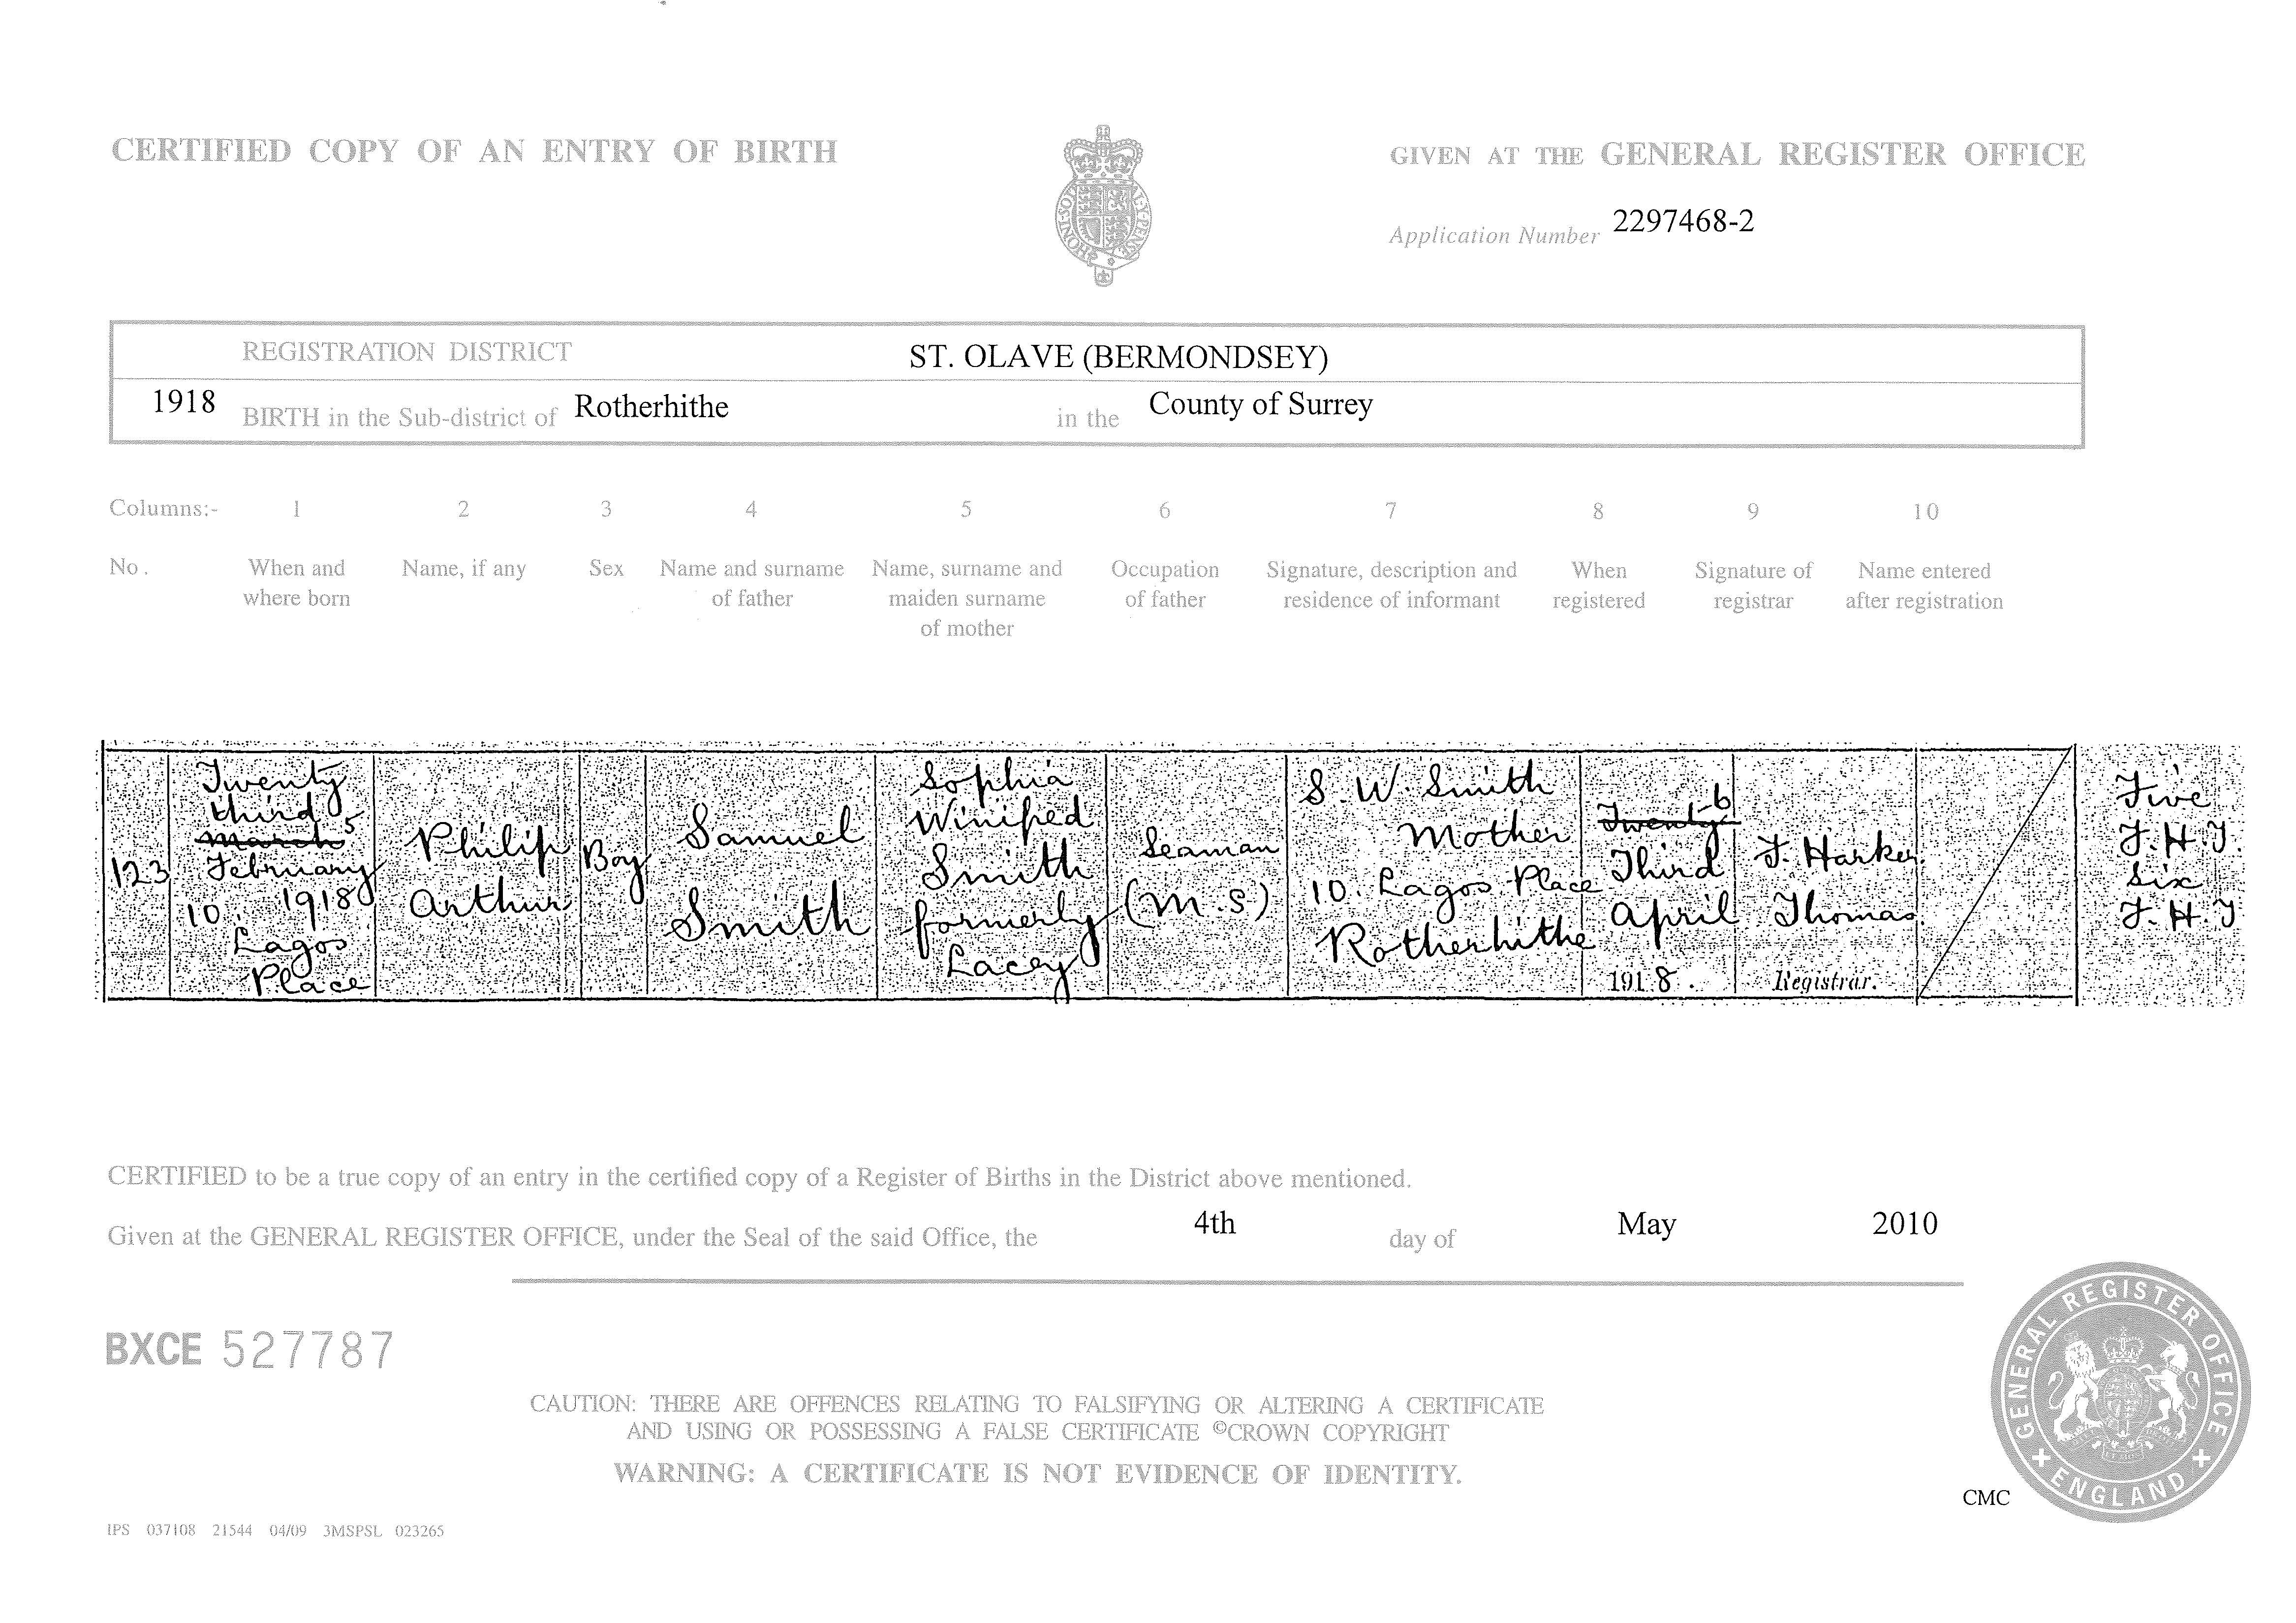 CERTIFIED COPY OF AN ENTRY OF BIRTH
GIVEN AT THE GENERAL REGISTER OFFICE
Application Number 2297468-2
REGISTRATION DISTRICT ST. OLAVE (BERMONDSEY)
1918 BIRTH in the Sub-district of Rotherhithe in the County of Surrey
Columns:- 1 2 3 4 5 6 7 8 9 10
No. When and where born
Name, if any
Sex
Name and surname of father
Name, surname and maiden surname of mother
Occupation of father
Signature, description and residence of informant
When registered
Signature of registrar
Name entered after registration
123
Twenty
third
March 5
February
1918
10.
Lagos
Place
Philip
Arthur
Boy
Samuel
Smith
Sophia
Winifred
Smith
formerly
Lacey
Seaman
(M.S)
S. W. Smith
Mother
10. Lagos Place
Rotherhithe
Twenty 6
Third
April
1918.
J. Harker
Thomas
Registrar.
Five
J.H.T.
Six
J.H.T
CERTIFIED to be a true copy of an entry in the certified copy of a Register of Births in the District above mentioned.
Given at the GENERAL REGISTER OFFICE, under the Seal of the said Office, the 4th day of May 2010
BXCE 527787
CAUTION: THERE ARE OFFENCES RELATING TO FALSIFYING OR ALTERING A CERTIFICATE
AND USING OR POSSESSING A FALSE CERTIFICATE ©CROWN COPYRIGHT
WARNING: A CERTIFICATE IS NOT EVIDENCE OF IDENTITY.
CMC
GENERAL REGISTER OFFICE
ENGLAND
IPS 037108 21544 04/09 3MSPSL 023265